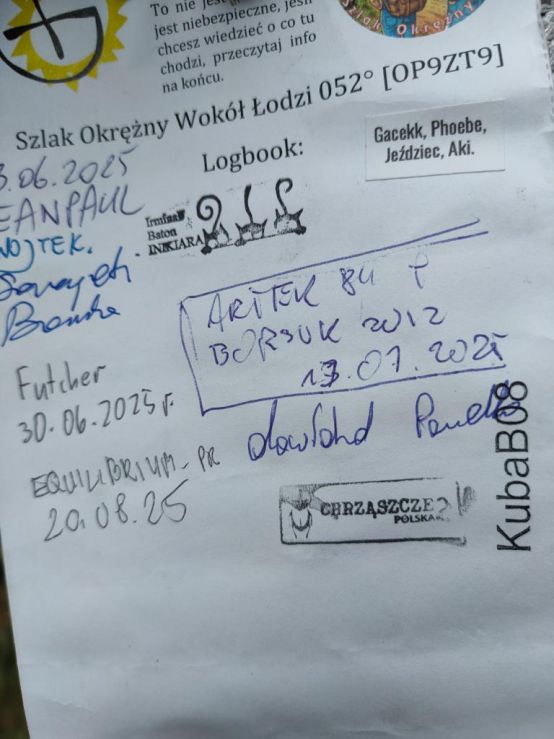 To nie jest
jest niebezpieczne, jeśli
chcesz wiedzieć o co tu
chodzi, przeczytaj info
na końcu.
Szlak Okrężny
Szlak Okrężny Wokół Łodzi 052° [OP9ZT9]
Logbook:
Gacekk, Phoebe,
Jeździec, Aki.
3.06.2025
EANPAUL
WOJTEK.
Irmina
Baton
INKIARA
ARTEK 84
BORSUK 2012
13.07.2025
Futcher
30.06.2025r.
EQUILIBRIUM_PR
20.08.25
CHRZĄSZCZE
POLSKA
KubaB08